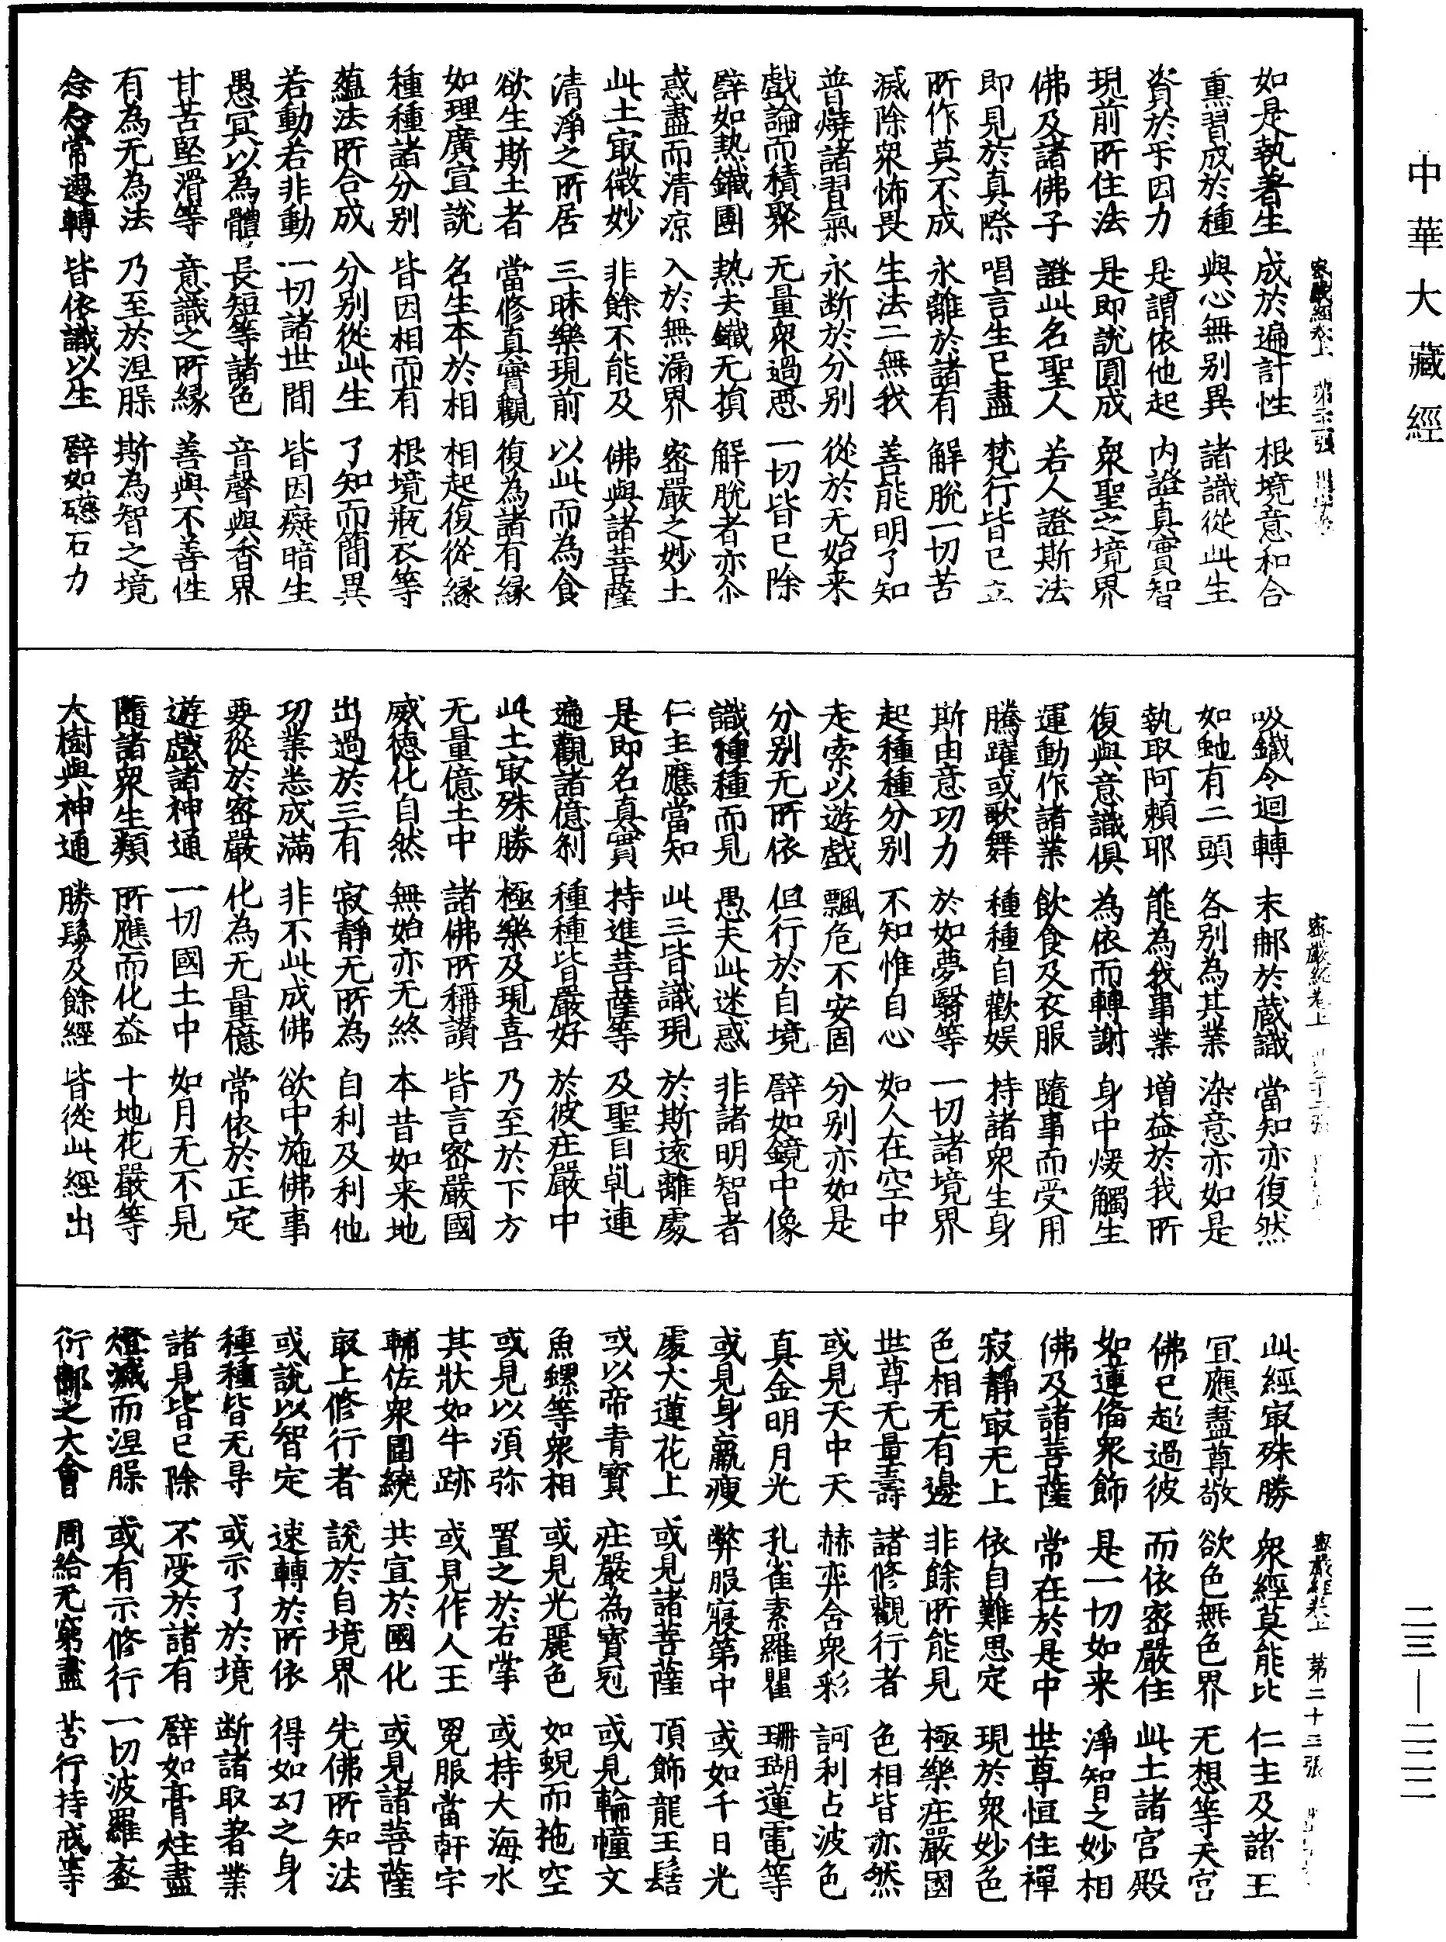 中華大藏經
如是執著生　成於遍計性　根境意和合
熏習成於種　與心無別異　諸識從此生
資於於因力　是謂依他起　內證真實智
現前所住法　是即說圓成　眾聖之境界
佛及諸佛子　證此名聖人　若人證斯法
即見於真際　唱言生已盡　梵行皆已立
所作莫不成　永離於諸有　解脫一切苦
滅除眾怖畏　生法二無我　善能明了知
普燒諸習氣　永斷於分別　從於无始来
戲論而積聚　无量眾過惡　一切皆已除
譬如熱鐵團　熱去鐵无損　解脫者亦尒
惑盡而清涼　入於無漏界　密嚴之妙土
此土㝡微妙　非餘不能及　佛與諸菩薩
清淨之所居　三昧樂現前　以此而為食
欲生斯土者　當修真實觀　復為諸有緣
如理廣宣說　名生本於相　相起復從緣
種種諸分別　皆因相而有　根境瓶衣等
蘊法所合成　分別從此生　了知而簡異
若動若非動　一切諸世間　皆因癡暗生
愚冥以為體　長短等諸色　音聲與香界
甘苦堅滑等　意識之所緣　善與不善性
有為无為法　乃至於涅槃　斯為智之境
念念常遷轉　皆依識以生　譬如礠石力
吸鐵令迴轉　末那於藏識　當知亦復然
如虵有二頭　各別為其業　染意亦如是
執取阿賴耶　能為我事業　增益於我所
復與意識俱　為依而轉謝　身中煖觸生
運動作諸業　飲食及衣服　隨事而受用
騰躍或歌舞　種種自歡娛　持諸眾生身
斯由意功力　於如夢翳等　一切諸境界
起種種分別　不知惟自心　如人在空中
走索以遊戲　飄危不安固　分別亦如是
分別无所依　但行於自境　譬如鏡中像
識種種而見　愚夫此迷惑　非諸明智者
仁主應當知　此三皆識現　於斯遠離處
是即名真實　持進菩薩等　及聖目乹連
遍觀諸億剎　種種皆嚴好　於彼庄嚴中
此土㝡殊勝　極樂及現喜　乃至於下方
无量億土中　諸佛所稱讚　皆言密嚴國
威德化自然　無始亦无終　本昔如来地
出過於三有　寂靜无所為　自利及利他
功業悉成滿　非不此成佛　欲中施佛事
要從於密嚴　化為无量億　常依於正定
遊戲諸神通　一切國土中　如月无不見
隨諸眾生類　所應而化益　十地花嚴等
大樹與神通　勝鬘及餘經　皆從此經出
此經㝡殊勝　眾經莫能比　仁主及諸王
宜應盡尊敬　欲色無色界　无想等天宮
佛已超過彼　而依密嚴住　此土諸宮殿
如蓮俻眾飾　是一切如来　淨智之妙相
佛及諸菩薩　常在於是中　世尊恒住禪
寂靜㝡无上　依自難思定　現於眾妙色
色相无有邊　非餘所能見　極樂庄嚴國
世尊无量壽　諸修觀行者　色相皆亦然
或見天中天　赫弈含眾彩　訶利占波色
真金明月光　孔雀素羅瞿　珊瑚蓮電等
或見身羸瘦　弊服寢第中　或如千日光
處大蓮花上　或見諸菩薩　頂飾龍王髻
或以帝青寶　庄嚴為寶冠　或見輪幢文
魚螺等眾相　或見光麗色　如蜺而拖空
或見以須弥　置之於右掌　或持大海水
其狀如牛跡　或見作人王　冕服當軒宇
輔佐眾圍繞　共宣於國化　或見諸菩薩
㝡上修行者　說於自境界　先佛所知法
或說以智定　速轉於所依　得如幻之身
種種皆无㝵　或示了於境　断諸取著業
諸見皆已除　不受於諸有　譬如膏炷盡
燈滅而涅槃　或有示修行　一切波羅蜜
衍那之大會　周給无窮盡　苦行持戒等
密嚴經卷上
密嚴經卷上
密嚴經卷上　第二十三張
二三—二二二